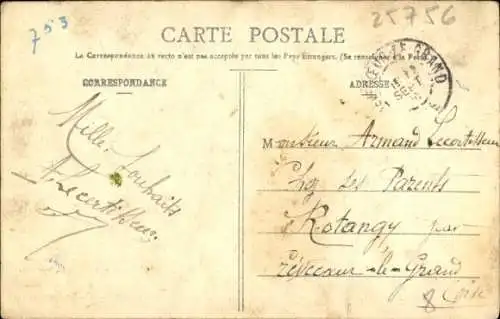 753
25756
CARTE POSTALE
La Correspondance au recto n'est pas acceptée par tous les Pays Étrangers. (Se renseigner à la Poste)
CORRESPONDANCE
ADRESSE
Mille Souhaits
A Lecortilleur
Monsieur Armand Lecortilleur
Chez Ses Parents
à Rotangy par
Crévecoeur-le-Grand
Oise